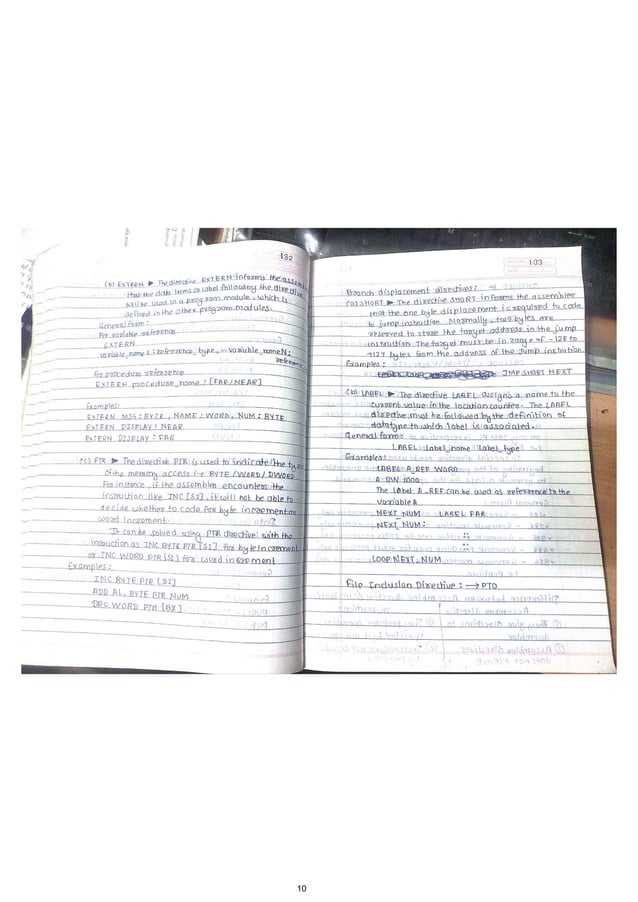 132
(b) EXTERN ► The directive EXTERN informs the
that the data items or label following the directive
will be used in a program module, which is
defined in the other program modules.
General form:
For variable reference
EXTERN
variable_name 1: reference_type, in variable_name N:
reference
For procedure reference
EXTERN procedure_name : [FAR/NEAR]
Examples:
EXTERN MSG: BYTE, NAME: WORD, NUM: BYTE
EXTERN DISPLAY: NEAR
EXTERN DISPLAY: FAR
(c) PTR ► The directive PTR is used to indicate the
of the memory access i.e. BYTE/WORD/DWORD
For instance, if the assembler encounters the
instruction like INC [SI], it will not be able to
decide whether to code for byte increment or
word increment.
It can be solved using PTR directive with the
instruction as INC BYTE PTR [SI] for byte increment
or INC WORD PTR [SI] for word increment
Examples:
INC BYTE PTR [DI]
ADD AL, BYTE PTR NUM
DEC WORD PTR [BX]
133
Branch displacement directives:
(a) SHORT ► The directive SHORT informs the assembler
that the one byte displacement is required to code
to jump instruction. Normally, two bytes are
reserved to store the target address in the jump
instruction. The target must be in range of -128 to
+127 bytes from the address of the jump instruction.
Examples:
JMP SHORT NEXT
(b) LABEL ► The directive LABEL assigns a name to the
current value in the location counter. The LABEL
directive must be followed by the definition of
datatype to which label is associated.
General form:
LABEL label_name label_type
Examples:
LABEL A_REF WORD
A DW 1000
The label A_REF can be used as reference to the
variable A.
NEXT_NUM LABEL FAR
NEXT_NUM:
LOOP NEXT_NUM
File Inclusion Directive: → PTO
10